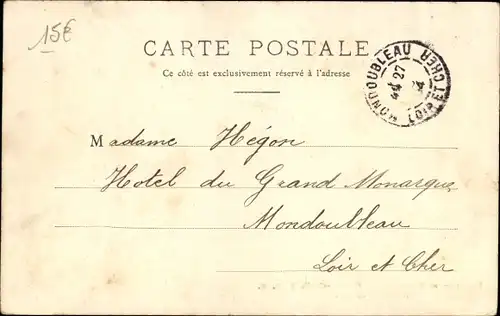 15€
CARTE POSTALE
Ce côté est exclusivement réservé à l'adresse
MONDOUBLEAU
LOIR ET CHER
27
Madame Hégon
Hotel du Grand Monarque
Mondoubleau
Loir et Cher